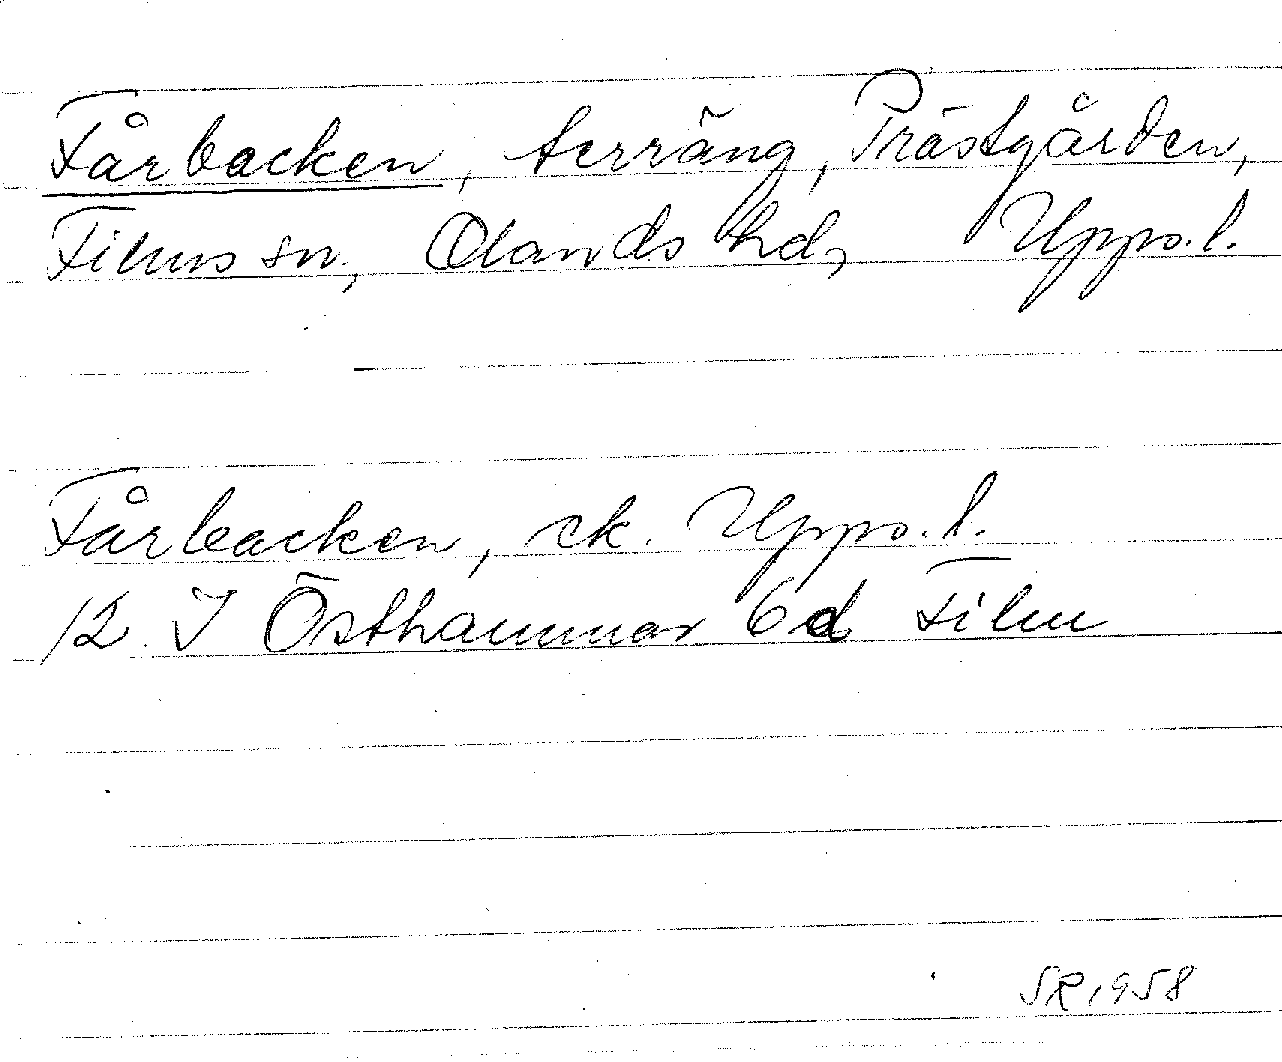 Fårbacken, terräng, Prästgården,
Films sn, Olands hd, Upps. l.
Fårbacken, ek. Upps. l.
12 I Östhammar 6 d Film
SR 1958